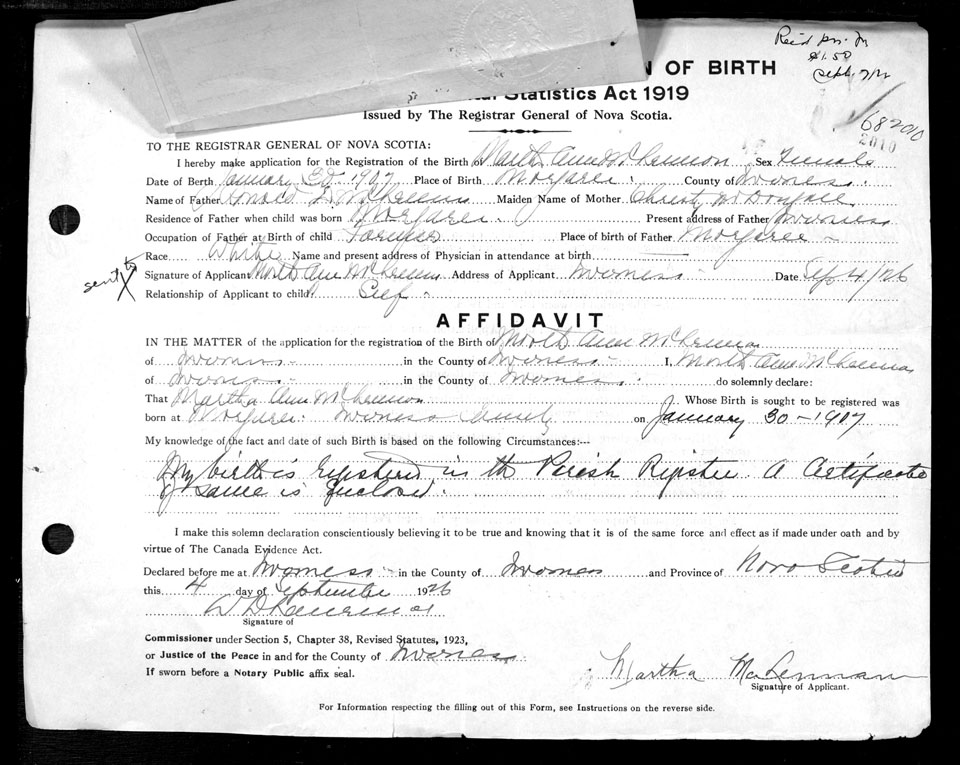 Sept
$1.50
N OF BIRTH
Statistics Act 1919
Issued by The Registrar General of Nova Scotia.
68 2010
2010
TO THE REGISTRAR GENERAL OF NOVA SCOTIA:
I hereby make application for the Registration of the Birth of Martha Ann McLennon Sex Female
Date of Berth January 30 1907 Place of Birth Margaree County of Inverness
Name of Father McLennon Maiden Name of Mother Christy McDougall
Residence of Father when child was born Margaree Present address of Father Inverness
Occupation of Father at Birth of child Farmer Place of birth of Father Margaree
Race White Name and present address of Physician in attendance at birth
sent
Signature of Applicant Martha Ann McLennon Address of Applicant Inverness Date Sep 4/26
Relationship of Applicant to child Self
AFFIDAVIT
IN THE MATTER of the application for the registration of the Birth of Martha Ann McLennon
of Inverness in the County of Inverness I, Martha Ann McLennon
of Inverness in the County of Inverness do solemnly declare:
That Martha Ann McLennon Whose Birth is sought to be registered was
born at Margaree Inverness County on January 30 - 1907
My knowledge of the fact and date of such Birth is based on the following Circumstances:—
My birth is registered in the Parish Register. A Certificate
of same is Inclosed.
I make this solemn declaration conscientiously believing it to be true and knowing that it is of the same force and effect as if made under oath and by
virtue of The Canada Evidence Act.
Declared before me at Inverness in the County of Inverness and Province of Nova Scotia
this 4 day of September 1926
Signature of
Commissioner under Section 5, Chapter 38, Revised Statutes, 1923,
or Justice of the Peace in and for the County of Inverness
If sworn before a Notary Public affix seal.
Martha MacLennan
Signature of Applicant.
For Information respecting the filling out of this Form, see Instructions on the reverse side.